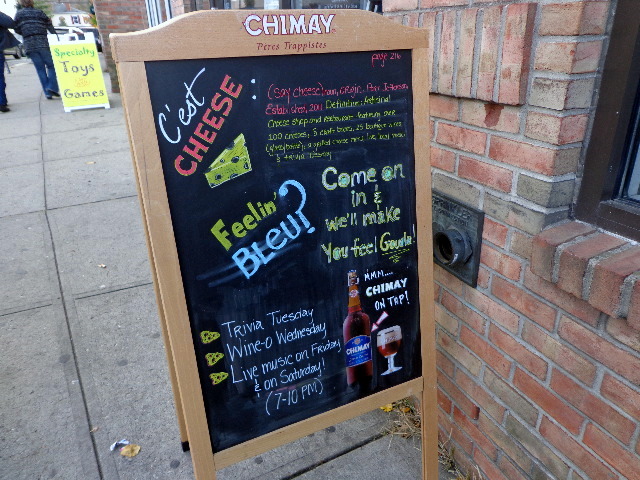 Specialty
Toys
&
Games
CHIMAY
Pères Trappistes
page 216
C'est
CHEESE
:
(say cheese) noun, origin: Port Jefferson,
Established, 2011 Definition: Artisinal
Cheese shop and restaurant featuring over
100 cheeses, 8 craft beers, 25 bottles
a grilled cheese menu, live local music
& trivia Tuesday
Feelin'
BLEU?
Come on
in &
we'll make
You feel Gouda!
MMM....
CHIMAY
ON TAP!
CHIMAY
Trivia Tuesday
Wine-o Wednesday
Live music on Friday
& on Saturday!
(7-10 PM)